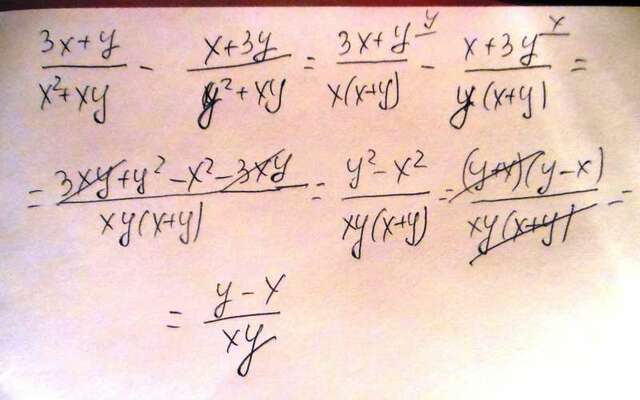 (3x+y)/(x²+xy) - (x+3y)/(y²+xy) = (3x+y)/(x(x+y)) ^y - (x+3y)/(y(x+y)) ^x =
= (3xy+y²-x²-3xy)/(xy(x+y)) = (y²-x²)/(xy(x+y)) = ((y+x)(y-x))/(xy(x+y)) =
= (y-x)/(xy)